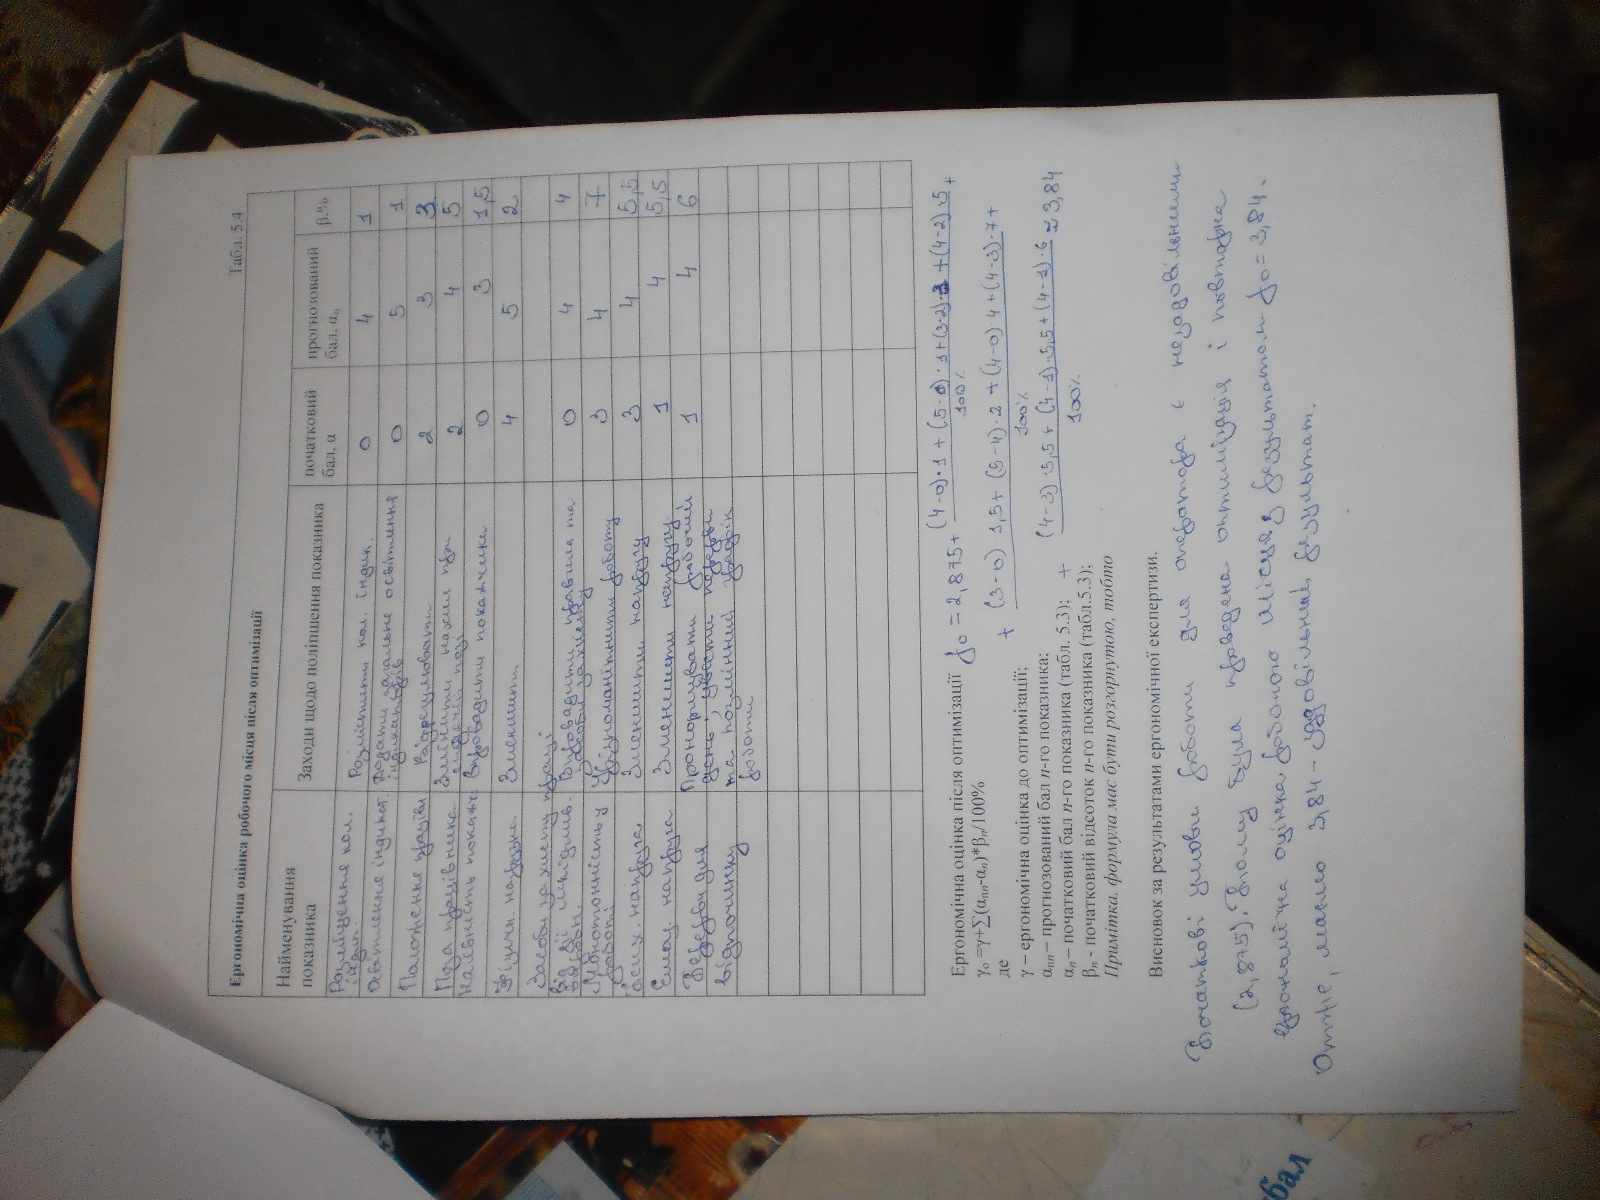 Табл. 5.4
Ергономічна оцінка робочого місця після оптимізації
Найменування показника Заходи щодо поліпшення показника початковий бал, α прогнозований бал, αп β,%
Розміщення кол. індик. Розмістити кол. індик. 0 4 1
Освітлення індикат. Додати загальне освітлення індикаторів 0 5 1
Положення працівн Відрегулювати 2 3 3
Поза працівника Змінити нахил при сидячій позі 2 4 5
Наявність покажч. Впровадити покажчики 0 3 1,5
Фізичн. наружка Зменшити 4 5 2
Засоби захисту праці від дії шкідлив. виробн. Впровадити правила та засоби захисту 0 4 4
Монотонність у роботі Урізноманітнити роботу 3 4 7
Псих. напруга Зменшити напругу 3 4 5,5
Емоц. напруга Зменшити напругу 1 4 5,5
Резерви для відпочинку Пронормувати робочий день; увести перерви та позмінний графік роботи 1 4 6
Ергономічна оцінка після оптимізації γо = 2,875 + (4-0)·1 + (5-0)·1 + (3-2)·3 + (4-2)·5 +
100%
γо =γ+∑(αпп-αп)*βп/100% + (3-0) 1,5 + (5-4)·2 + (4-0) 4 + (4-3)·7 +
100%
де
γ – ергономічна оцінка до оптимізації;
αпп – прогнозований бал п-го показника; (4-3)·5,5 + (4-1)·5,5 + (4-1)·6 ≈ 3,84
100%
αп – початковий бал п-го показника (табл. 5.3); +
βп - початковий відсоток п-го показника (табл.5.3);
Примітка. формула має бути розгорнутою, тобто
Висновок за результатами ергономічної експертизи.
Початкові умови роботи для оператора є незадовільними
(2,875). Тому була проведена оптимізація і повторна
ергономічна оцінка робочого місця з результатом γо = 3,84.
Отже, маємо 3,84 – задовільний результат.
бал